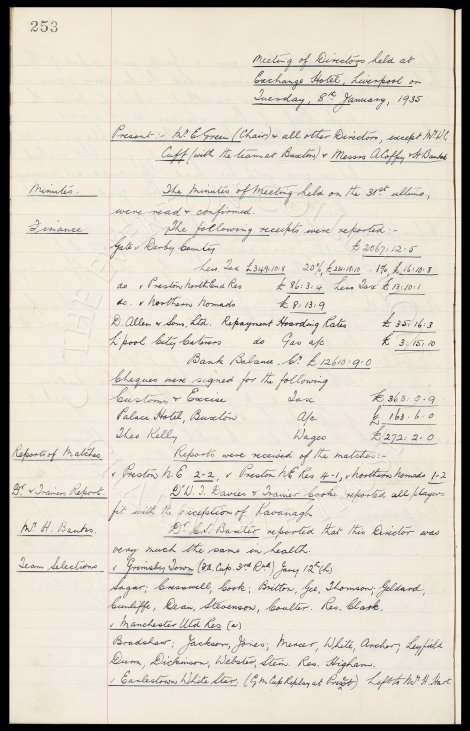 253
Meeting of Directors held at
Exchange Hotel, Liverpool on
Tuesday, 8th January, 1935
Present:- Mr E. Green (Chair) & all other Directors, except Mr W.C.
Cuff (with the team at Buxton) & Messrs A. Coffey & H. Banks
Minutes. The Minutes of Meeting held on the 31st ultimo,
were read & confirmed.
Finance The following receipts were reported:-
Gate v Derby County £2067.12.5
Less Tax £349.10.8 20%, £ 1%, £16.10.8
do v Preston North End Res £86.3.4 Less Tax £13.10.1
do. v Northern Nomads £8.13.9
D. Allen & Sons, Ltd. Repayment Hoarding Rates £35.16.3
L'pool City Caterers do Gas a/c £3.15.10
Bank Balance. Cr £12610.9.0
Cheques were signed for the following
Customs & Excise Tax £363.9.9
Palace Hotel, Buxton A/c £163.6.0
Theo Kelly Wages £272.2.0
Reports of Matches Reports were received of the matches:-
v Preston N.E. 2-2, v Preston N.E. Res 4-1, v Northern Nomads 1-2
Dr. & Trainers Report. Dr D.T. Davies & Trainer Cooke reported all players
fit with the exception of Kavanagh
Mr H. Banks. Dr. C.S. Baxter reported that this Director was
very much the same in health.
Team Selections v Grimsby Town (F.A. Cup. 3rd Rnd) Jany 12th (h)
Sagar, Cresswell, Cook; Britton, Gee, Thomson; Geldard,
Cunliffe, Dean, Stevenson, Coulter. Res. Clark.
v Manchester Utd Res (a)
Bradshaw; Jackson, Jones; Mercer, White, Archer; Leyfield
Dunn, Dickinson, Webster, Stein. Res. Higham.
v Earlestown White Star. (G.M. Cup Replay at Prescot) Left to Mr H. Hart.